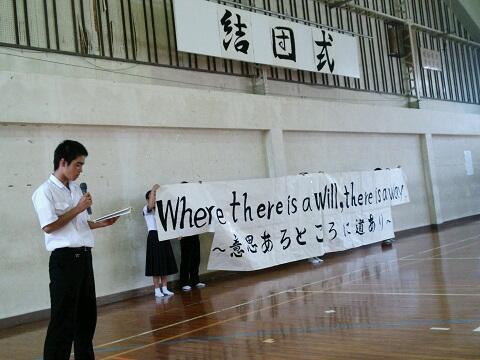 結団式
Where there is a will, there is a way
～意思あるところに道あり～